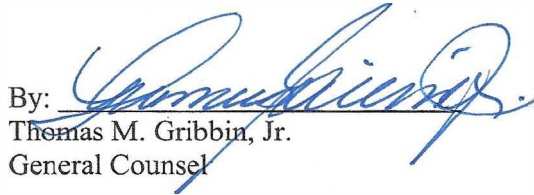 By:
Thomas M. Gribbin, Jr.
General Counsel